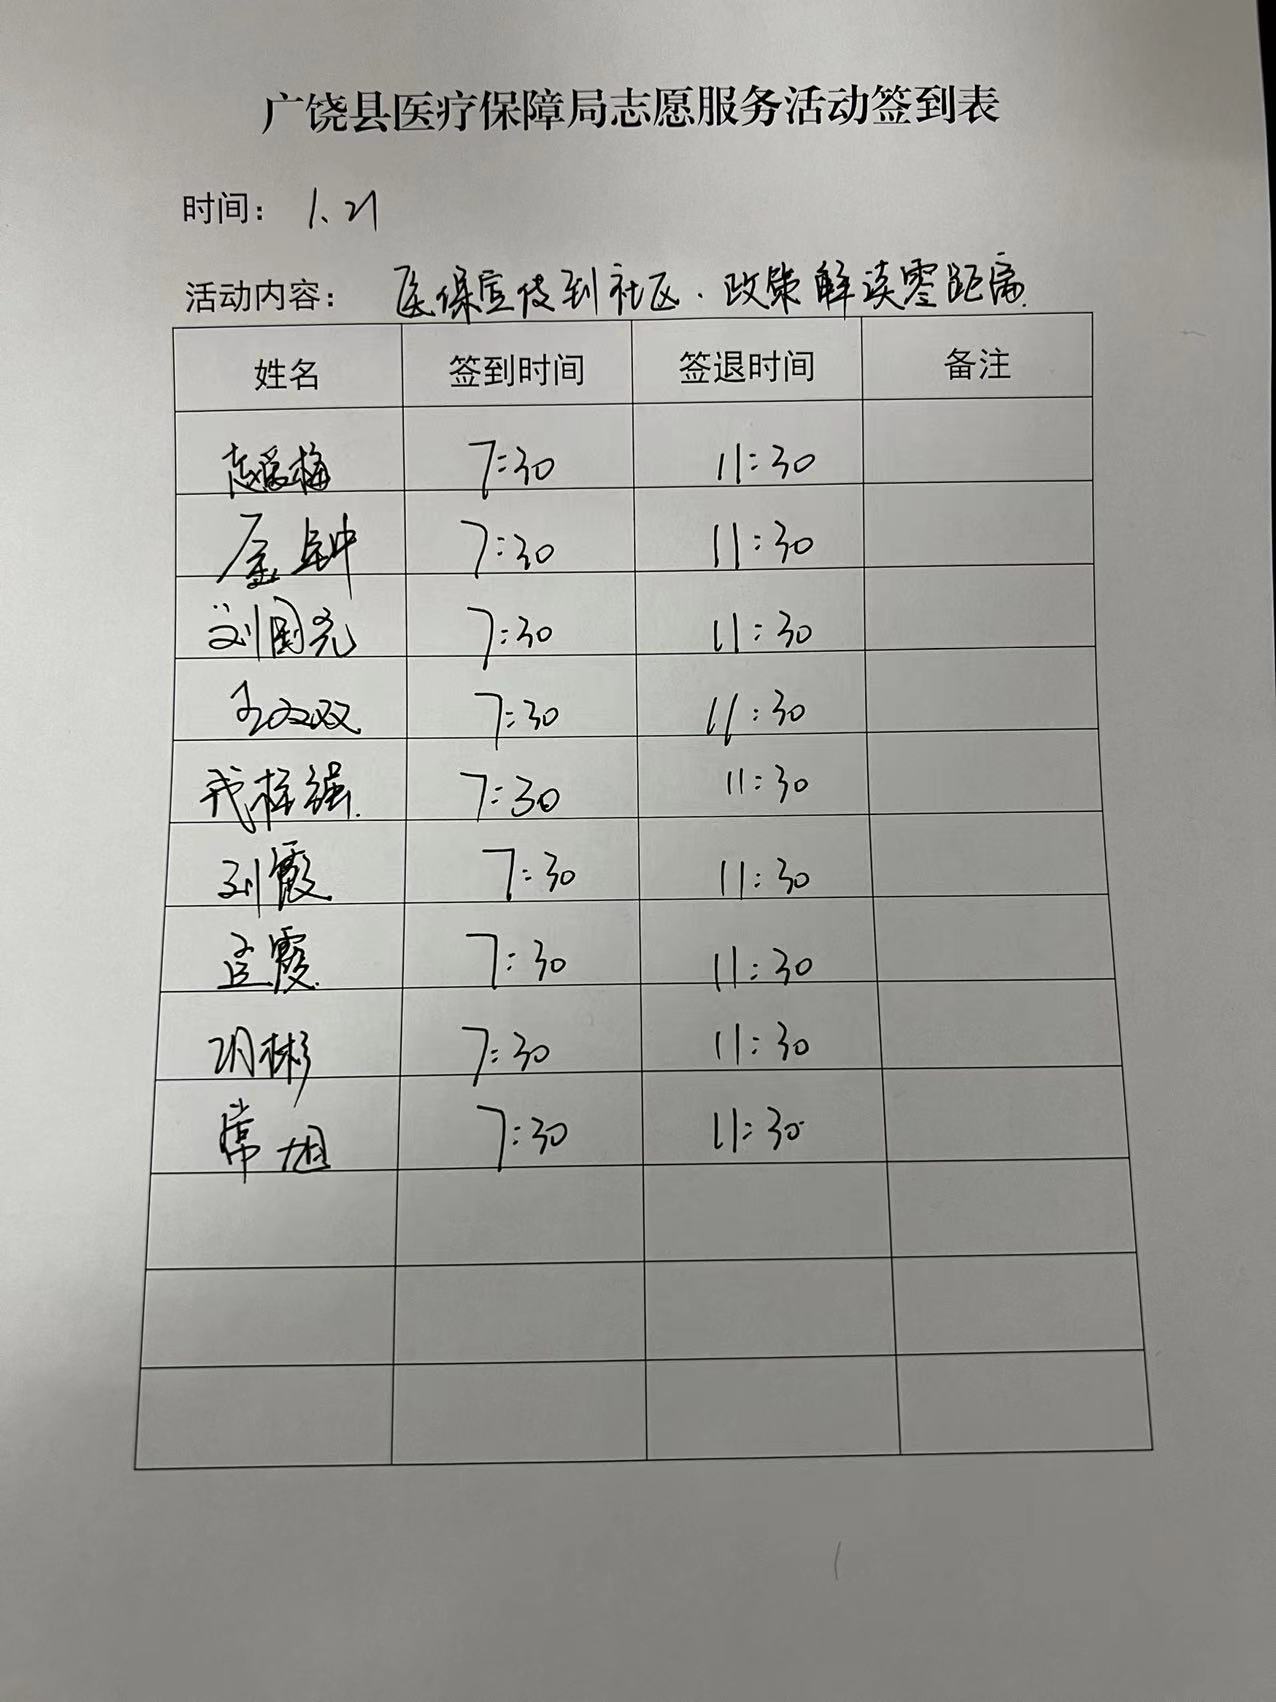 广饶县医疗保障局志愿服务活动签到表
时间： 1.21
活动内容： 医保宣传到社区.政策解读零距离
姓名 签到时间 签退时间 备注
7:30 11:30
7:30 11:30
刘国亮 7:30 11:30
王双双 7:30 11:30
7:30 11:30
刘霞 7:30 11:30
孟霞 7:30 11:30
7:30 11:30
常旭 7:30 11:30